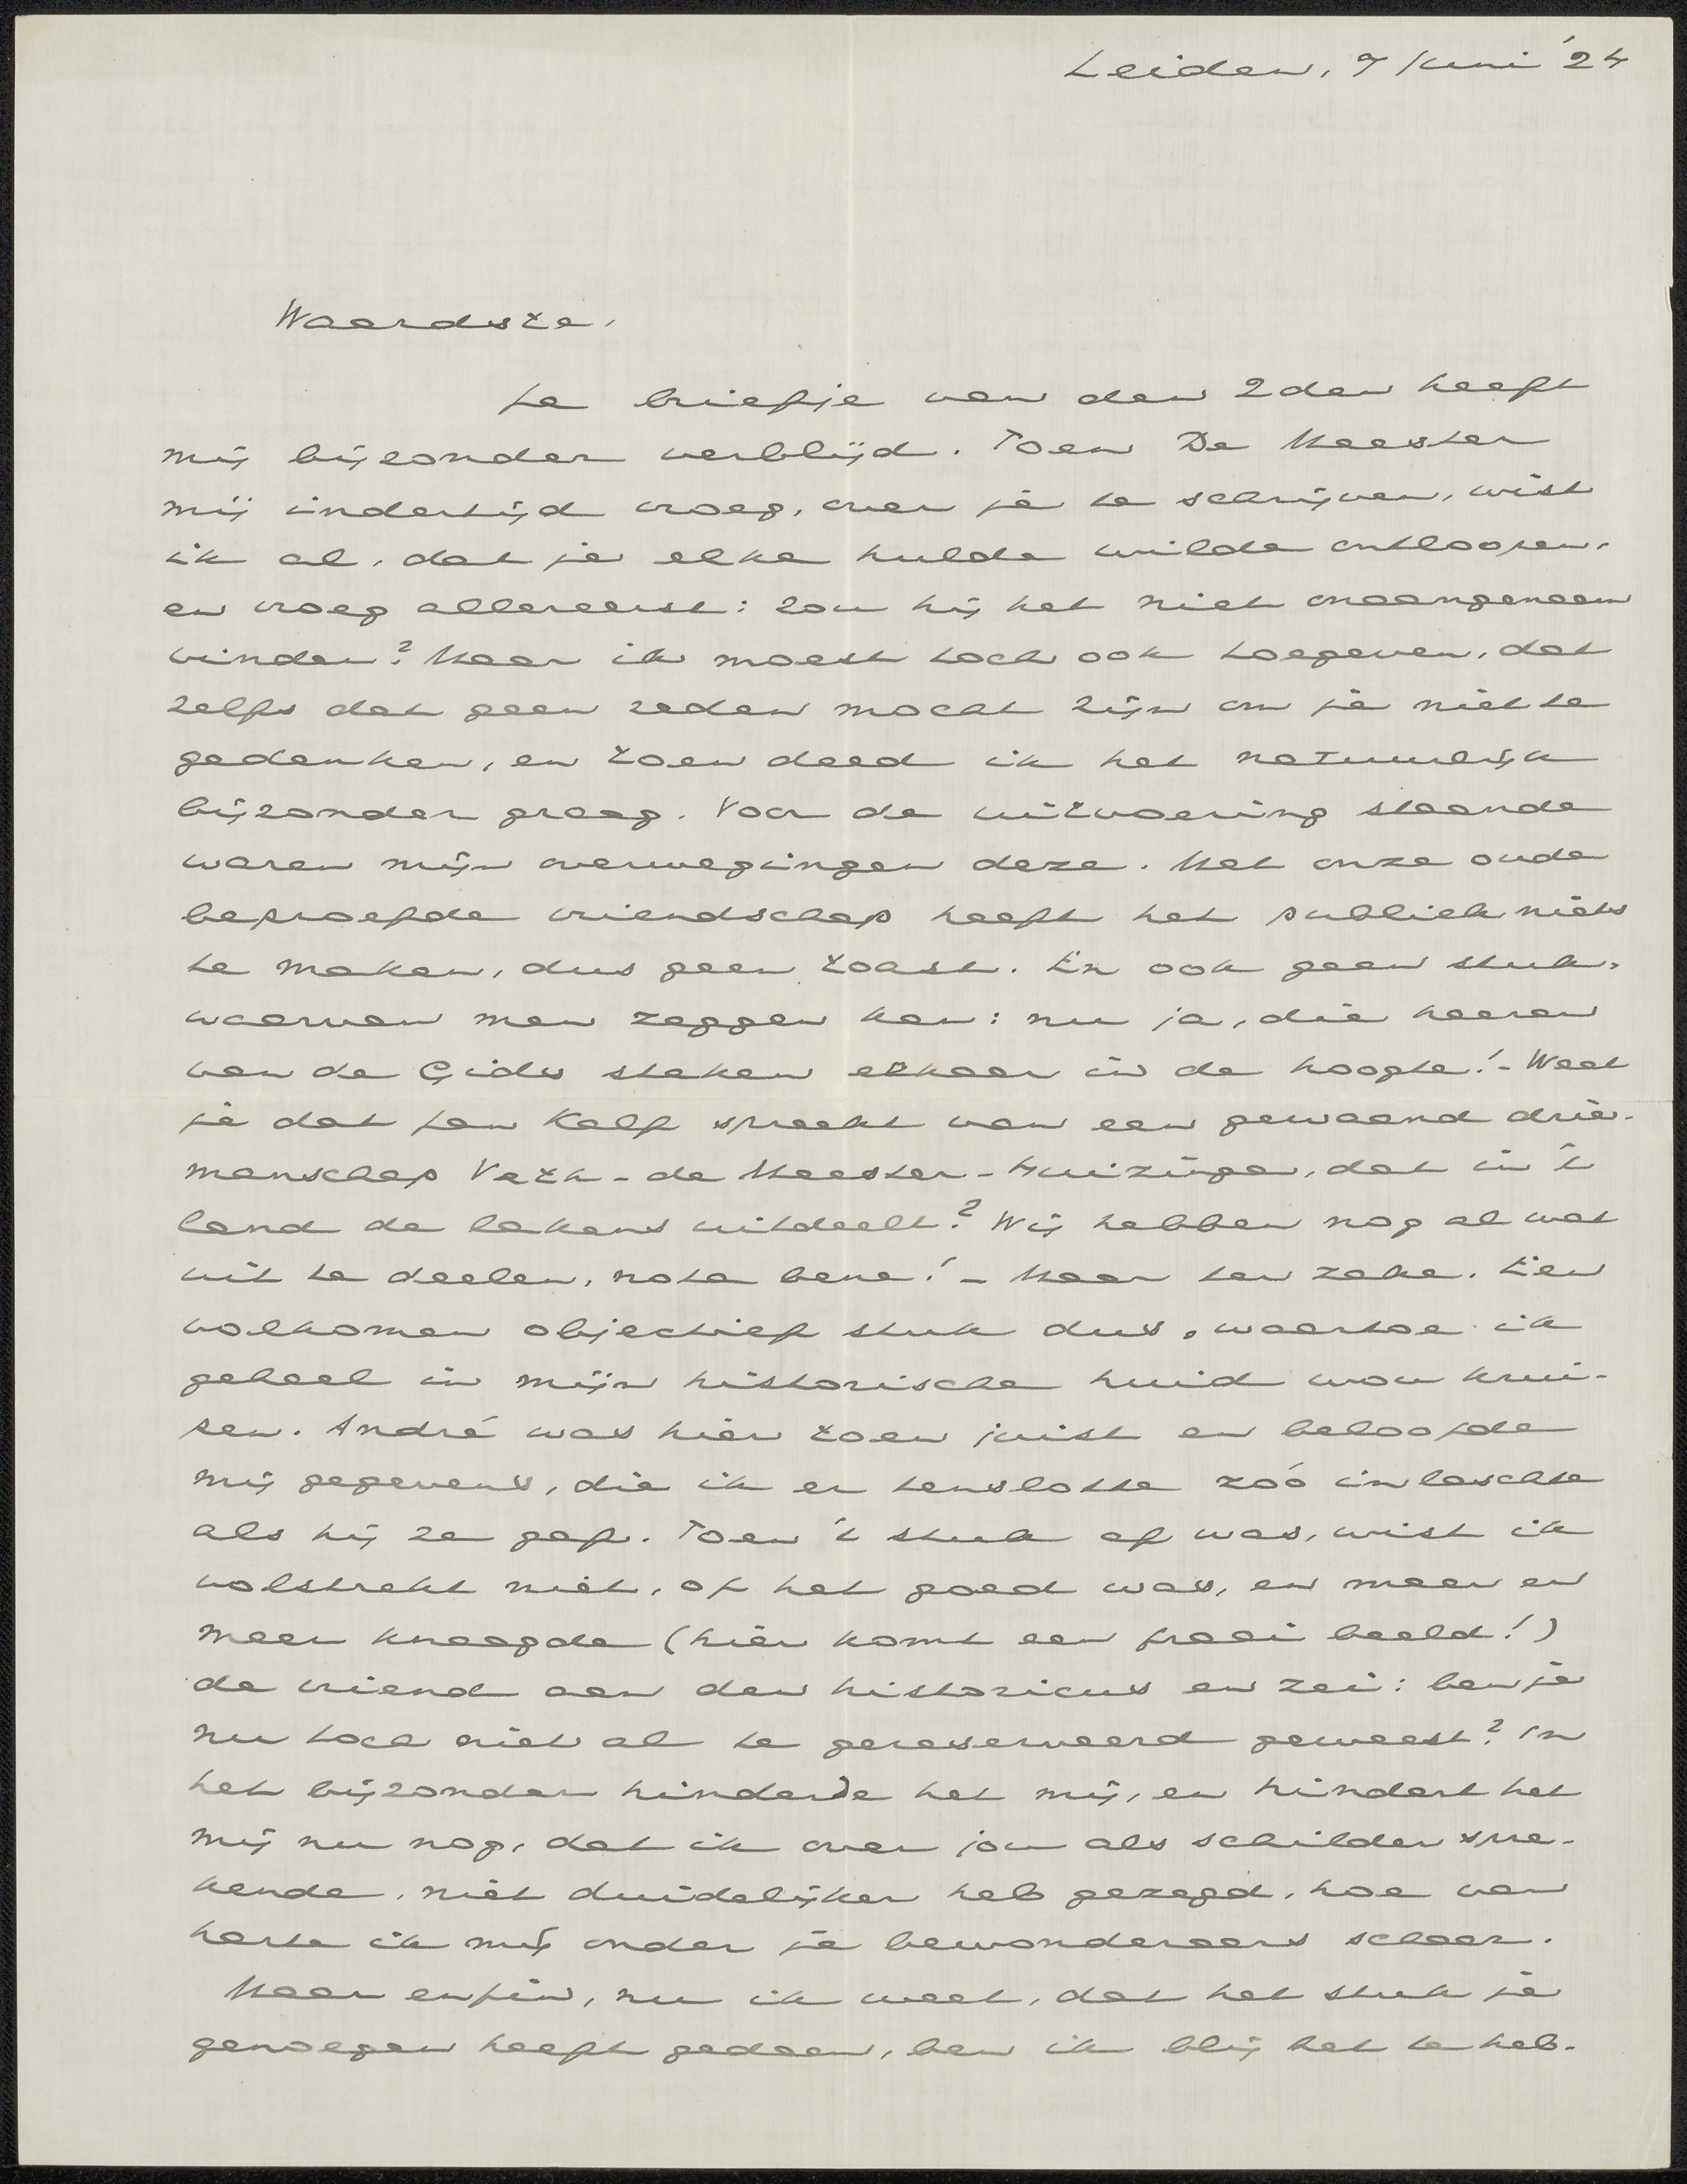 Leiden, 7 Juni '24
Waardste,
Je briefje van den 2den heeft
mij bijzonder verblijd. Toen De Meester
mij indertijd vroeg, over je te schrijven, wist
ik al, dat je elke hulde wilde ontloopen,
en vroeg allereerst: zou hij het niet onaangenaam
vinden? Maar ik moest toch ook toegeven, dat
zelfs dat geen reden mocht zijn om je niet te
gedenken, en toen deed ik het natuurlijk
bijzonder graag. Voor de uitvoering staande
waren mijn overwegingen deze. Met onze oude
beproefde vriendschap heeft het publiek niets
te maken, dus geen toast. En ook geen stuk,
waarvan men zeggen kan: nu ja, die heeren
van de Gids steken elkaar in de hoogte! - Weet
je dat Jan Kalf spreekt van een gewaand drie-
manschap Veth - de Meester - Huizinga, dat in 't
land de lakens uitdeelt? Wij hebben nog al wat
uit te deelen, nota bene! - Maar ter zake. Een
volkomen objectief stuk dus, waartoe ik
geheel in mijn historische huid wou krui-
pen. André was hier toen juist en beloofde
mij gegevens, die ik er tenslotte zóó inlaschte
als hij ze gaf. Toen 't stuk af was, wist ik
volstrekt niet, of het goed was, en meer en
meer knaagde (hier komt een fraai beeld!)
de vriend aan den historicus en zei: ben je
nu toch niet al te gereserveerd geweest? In
het bijzonder hinderde het mij, en hindert het
mij nu nog, dat ik over jou als schilder spre-
kende, niet duidelijker heb gezegd, hoe van
harte ik mij onder je bewonderaars schaar.
Maar enfin, nu ik weet, dat het stuk je
genoegen heeft gedaan, ben ik blij het te heb-